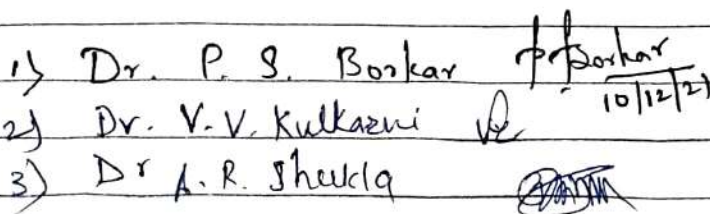 1) Dr. P. S. Borkar PBorkar 10/12/21
2) Dr. V. V. Kulkarni
3) Dr A. R. Shukla